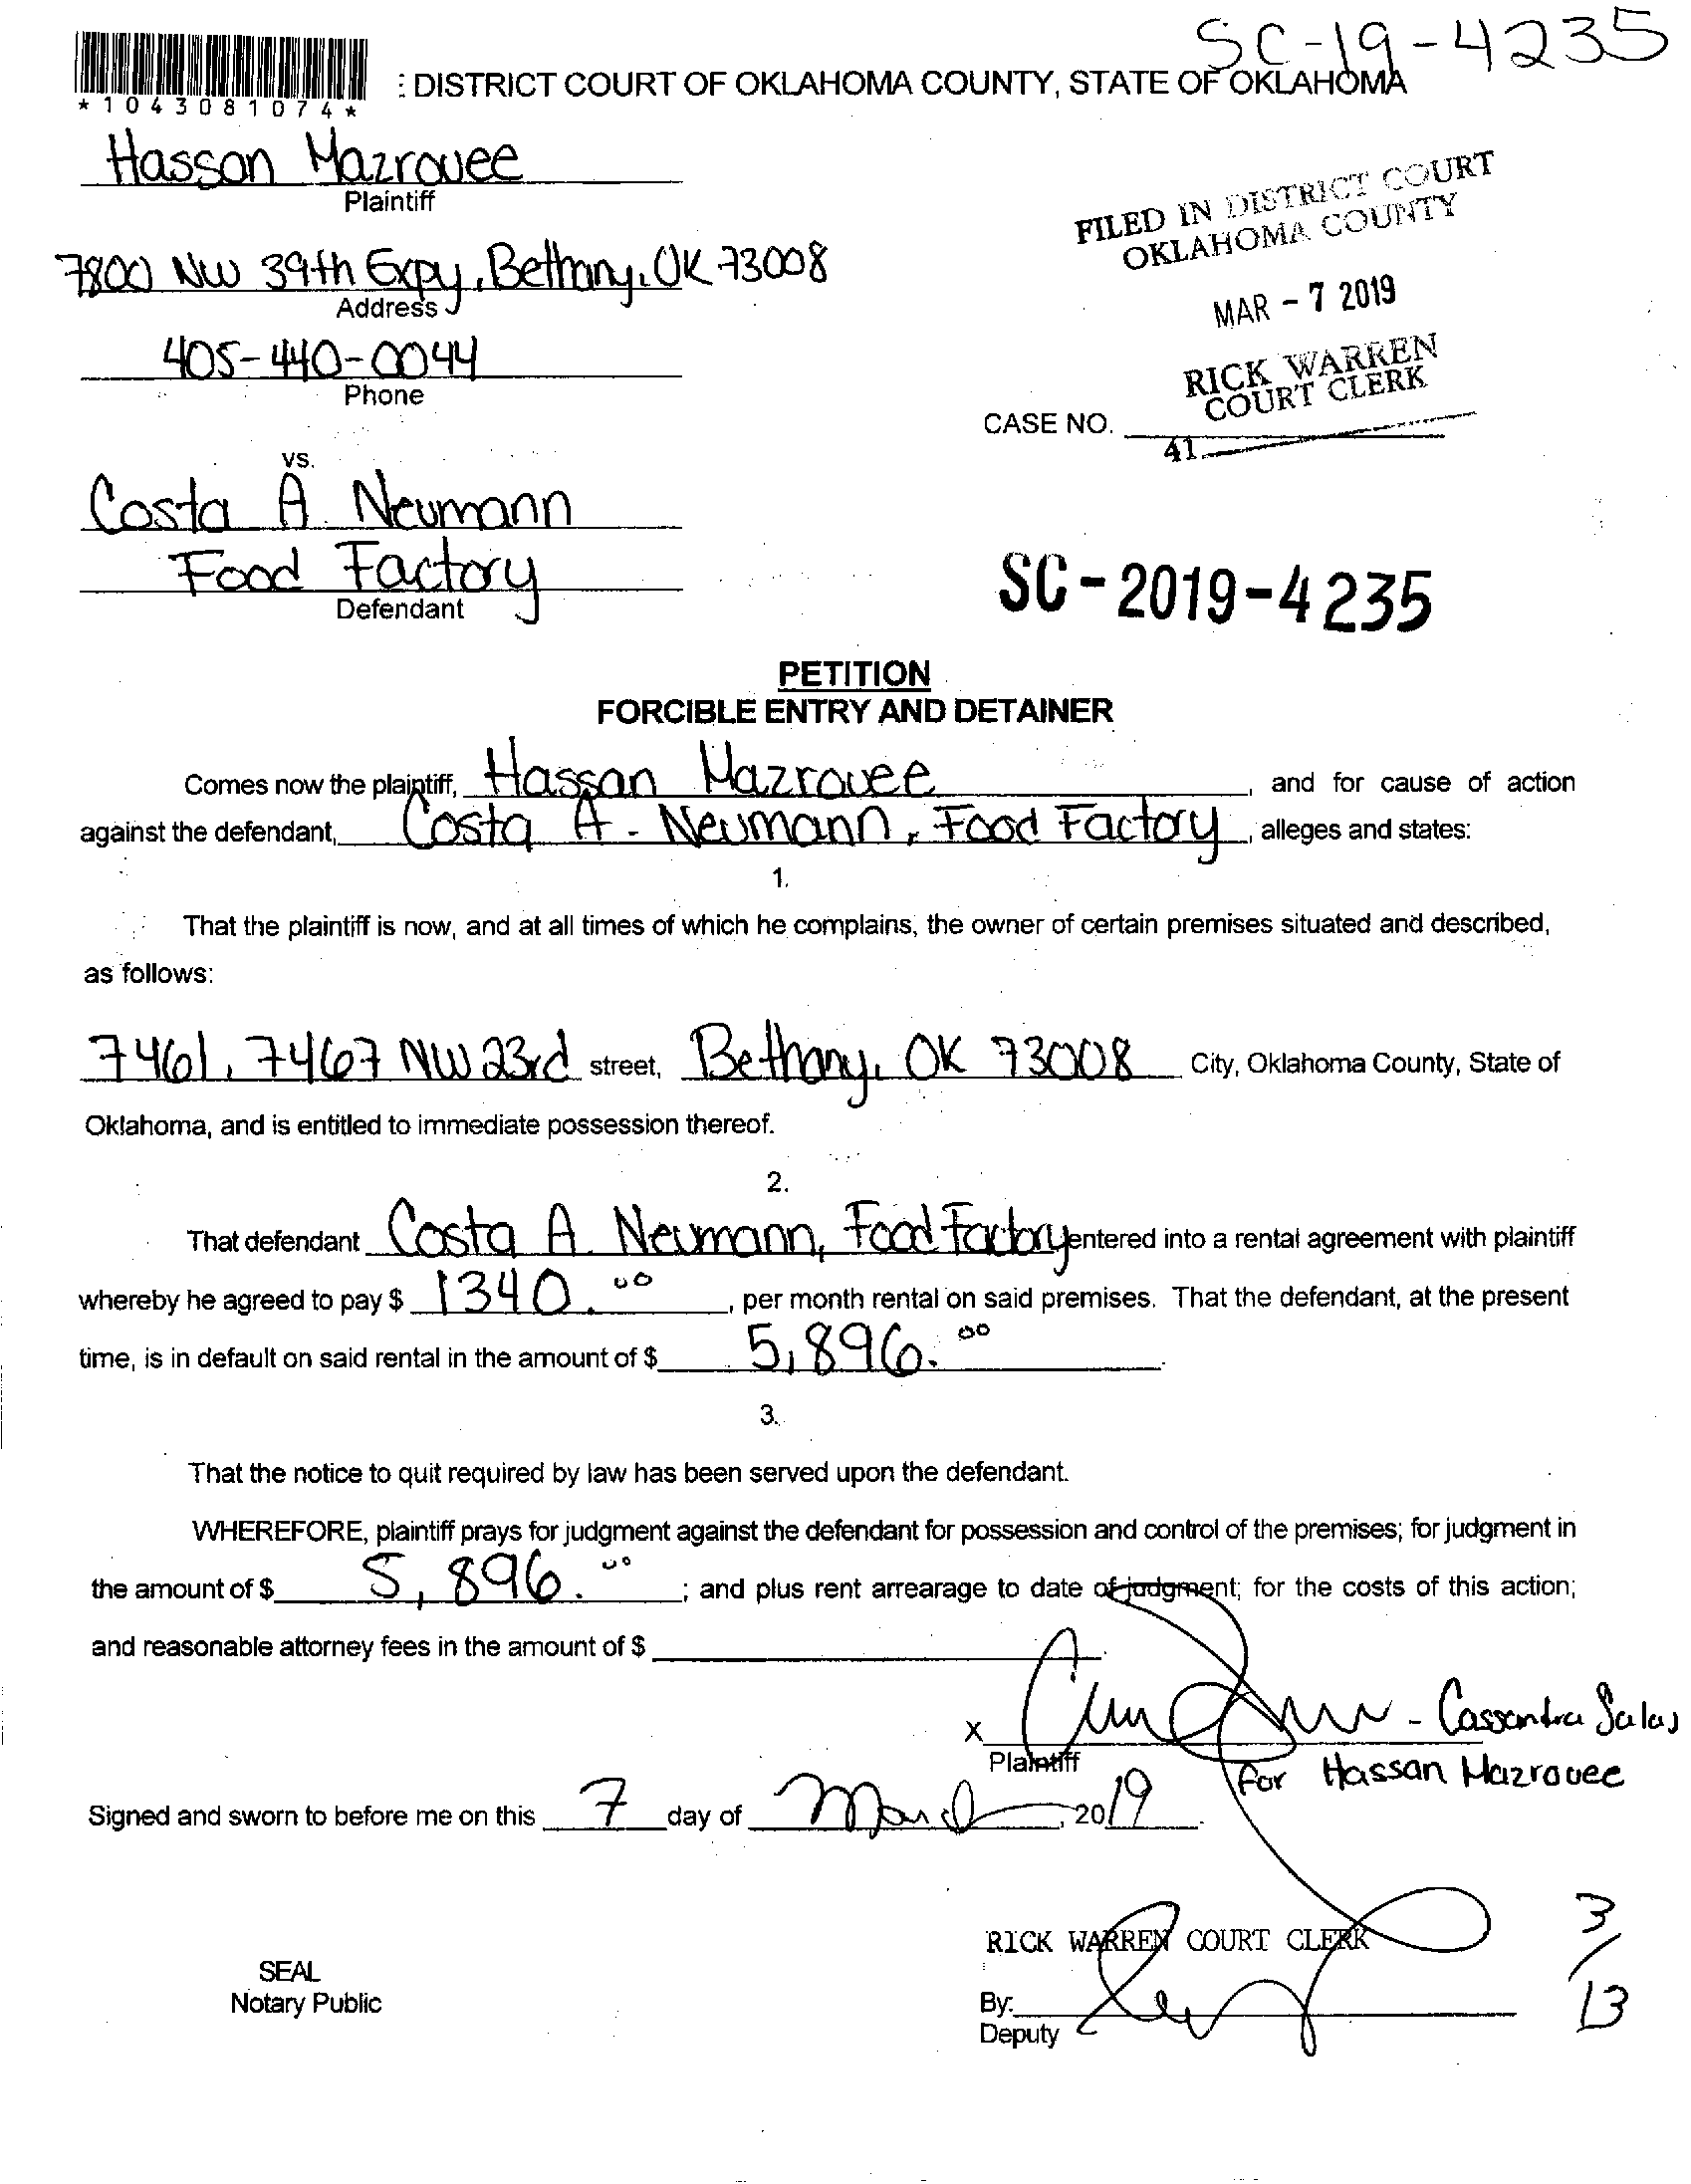 SC-19-4235
*1043081074*
: DISTRICT COURT OF OKLAHOMA COUNTY, STATE OF OKLAHOMA
Hassan Mazrouee
Plaintiff
7800 NW 39th Expy, Bethany, OK 73008
Address
405-440-0044
Phone
FILED IN DISTRICT COURT
OKLAHOMA COUNTY
MAR - 7 2019
RICK WARREN
COURT CLERK
CASE NO.
41
vs.
Costa A Neumann
Food Factory
Defendant
SC-2019-4235
PETITION
FORCIBLE ENTRY AND DETAINER
Comes now the plaintiff, Hassan Mazrouee, and for cause of action
against the defendant, Costa A. Neumann, Food Factory, alleges and states:
1.
That the plaintiff is now, and at all times of which he complains, the owner of certain premises situated and described,
as follows:
7461, 7467 NW 23rd street, Bethany, OK 73008 City, Oklahoma County, State of
Oklahoma, and is entitled to immediate possession thereof.
2.
That defendant Costa A. Neumann, Food Factory entered into a rental agreement with plaintiff
whereby he agreed to pay $ 1340.00, per month rental on said premises. That the defendant, at the present
time, is in default on said rental in the amount of $ 5,896.00.
3.
That the notice to quit required by law has been served upon the defendant.
WHEREFORE, plaintiff prays for judgment against the defendant for possession and control of the premises; for judgment in
the amount of $ 5,896.00; and plus rent arrearage to date of judgment; for the costs of this action;
and reasonable attorney fees in the amount of $
X - Cassandra Salas
Plaintiff for Hassan Mazrouee
Signed and sworn to before me on this 7 day of March, 2019.
RICK WARREN COURT CLERK
3/13
SEAL
Notary Public
By:
Deputy